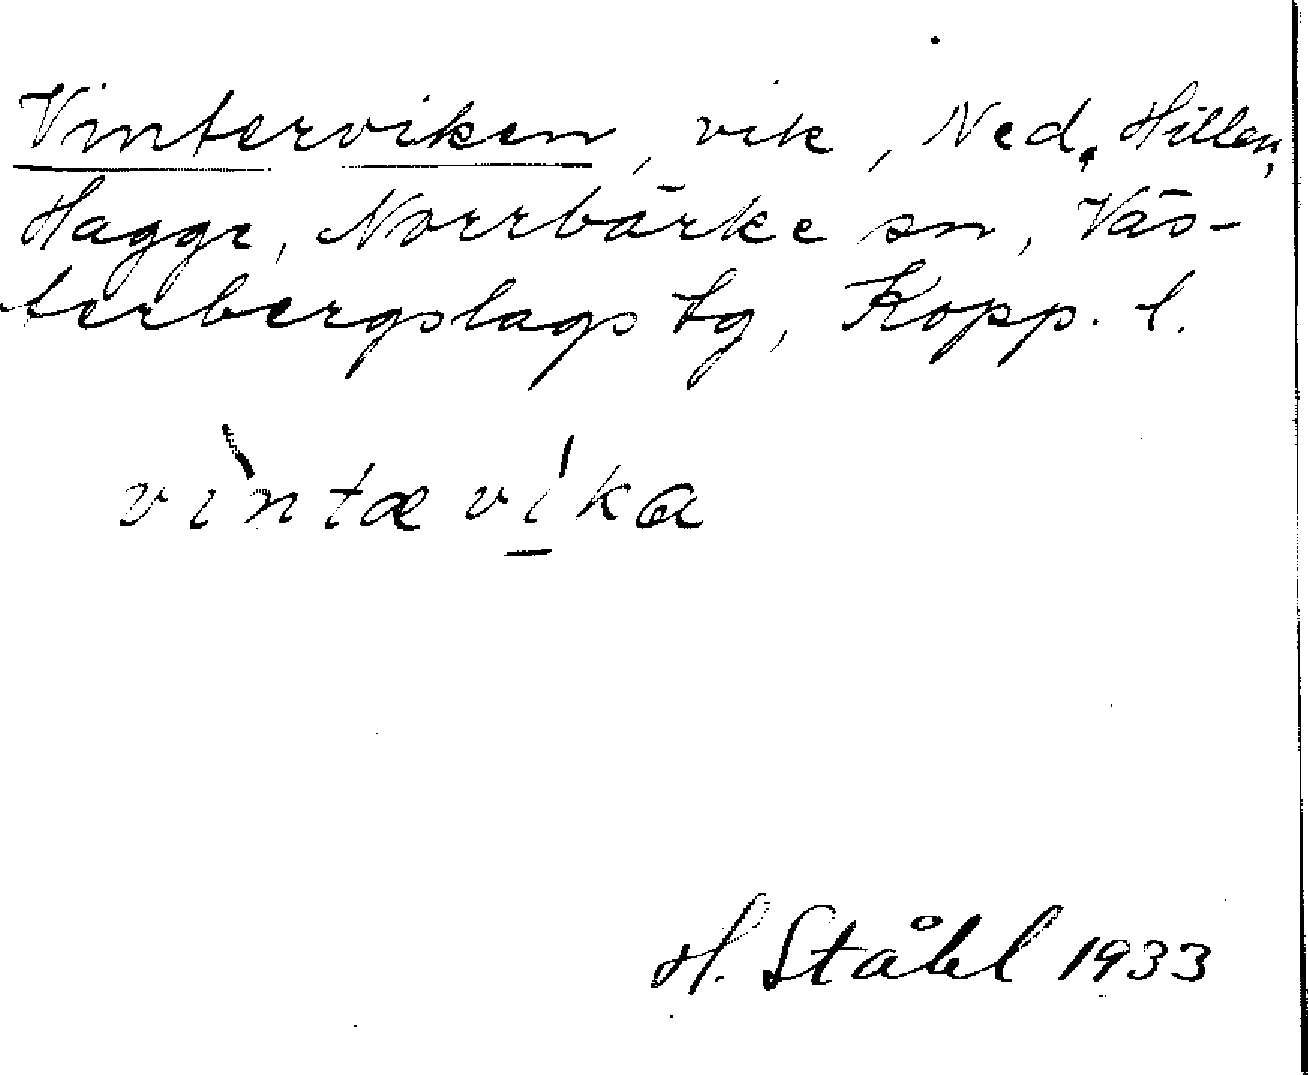 Vinterviken, vik, Ned. Hillen,
Hagge, Norrbärke sn, Väs-
terbergslags tg, Kopp. l.
vìntæví̱ka
H. Ståhl 1933